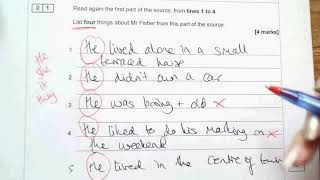 0 1
Read again the first part of the source, from lines 1 to 4.
List four things about Mr Fisher from this part of the source.
[4 marks]
He
she
it
they
1 He lived alone in a small
terraced house
2 He didn't own a car
3 He was boring + old x
4 He liked to do his marking on x
the weekend
5 He lived in the centre of town